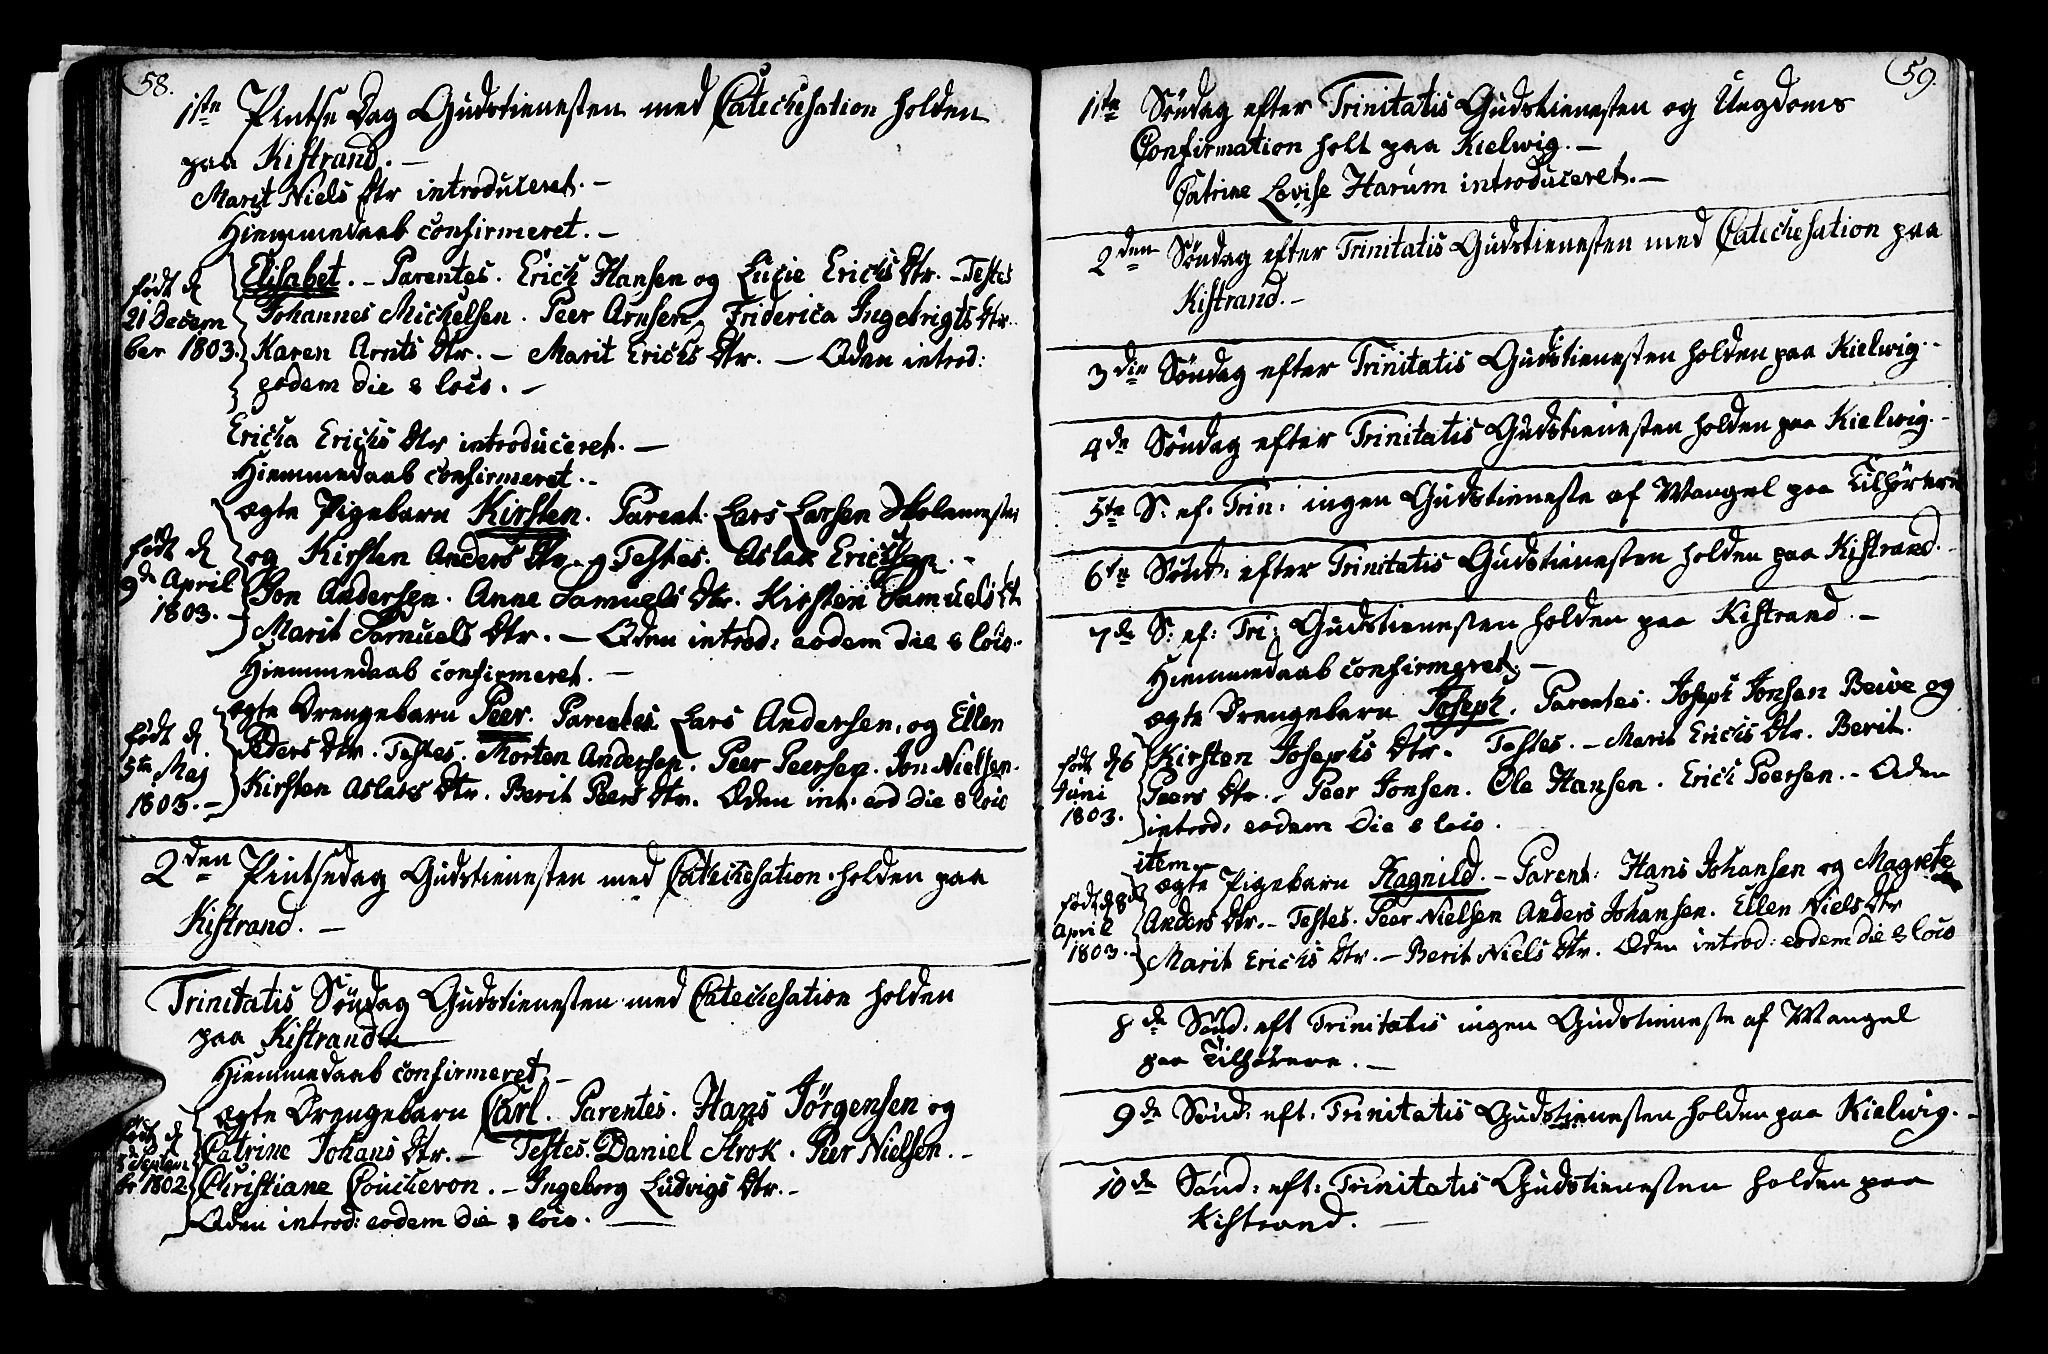 58.
1ste Pintse Dag Gudstienesten med Catechesation holden
paa Kistrand. —
Marit Niels Dtr introduceret. —
Hiemmedaab confirmeret. —
Elisabet. — Parentes. Erich Hansen og Lucie Erichs Dtr. — Testes
født d
21 Decem
ber 1803.
Johannes Michelsen. Peer Arnsen, Friderica Ingebrigts Dtr.
Karen Arnts Dtr. — Marit Erichs Dtr. — Øden introd:
eodem die & loco. —
Ericha Erichs Dtr introduceret. —
Hiemmedaab confirmeret. —
ægte Pigebarn Kirsten. Parent. Lars Larsen Skolemester
født d
9de April
1803. —
og Kirsten Anders Dtr. — Testes. Aslak Erichsen. —
Jon Andersen. Anne Samuels Dtr. Kirsten Samuels Dt.
Marit Samuels Dtr. — Øden introd: eodem die & loco.
Hiemmedaab confirmeret. —
ægte Drengebarn Peer. Parentes. Lars Andersen, og Ellen
født d
5te Maj
1803. —
Peders Dtr. Testes. Morten Andersen. Peer Peersen. Jon Nielsen.
Kirsten Aslaks Dtr. Berit Peers Dtr. Øden int: eod die & loco
2den Pintsedag Gudstienesten med Catechesation holden paa
Kistrand. —
Trinitatis Søndag Gudstienesten med Catechesation holden
paa Kistrand
Hiemmedaab confirmeret. —
ægte Drengebarn Carl. Parentes. Hans Jörgensen og
født d
Septem
br 1802.
Catrine Johans Dtr. — Testes. Daniel Krok. Peer Nielsen. —
Christiane Coucheron. — Ingeborg Ludvigs Dtr. —
Øden introd: eodem die & loco. —
59.
1ste Søndag efter Trinitatis Gudstienesten og Ungdoms
Confirmation holt paa Kielwig. —
Catrine Lovise Harum introduceret. —
2den Søndag efter Trinitatis Gudstienesten med Catechesation paa
Kistrand. —
3die Søndag efter Trinitatis Gudstienesten holden paa Kielwig. —
4de Søndag efter Trinitatis Gudstienesten holden paa Kielwig. —
5te S: ef: Trin: ingen Gudstieneste af Mangel paa Tilhørere
6te Sönd: efter Trinitatis Gudstienesten holden paa Kistrand. —
7de S: ef: Tri: Gudstienesten holden paa Kistrand. —
Hiemmedaab confirmeret. —
ægte Drengebarn Joseph. Parentes. Joseph Jonsen Beive og
født d 6
Juni
1803.
Kirsten Josephs Dtr. Testes. — Marit Erichs Dtr. Berit
Peers Dtr. — Peer Jonsen. Ole Hansen. Erich Peersen. — Øden
introd: eodem die & loco.
item —
ægte Pigebarn Ragnild. — Parent: Hans Johansen og Magrete
født d 8de
April
1803. —
Anders Dtr. — Testes. Peer Nielsen Anders Johansen. Ellen Niels Dtr
Marit Erichs Dtr. — Berit Niels Dtr. Øden introd: eodem die & loco
8de Sönd: eft Trinitatis ingen Gudstieneste af Mangel
paa Tilhørere. —
9de Sönd: eft: Trinitatis Gudstienesten holden paa Kielwig. —
10de Sönd: eft: Trinitatis Gudstienesten holden paa
Kistrand. —